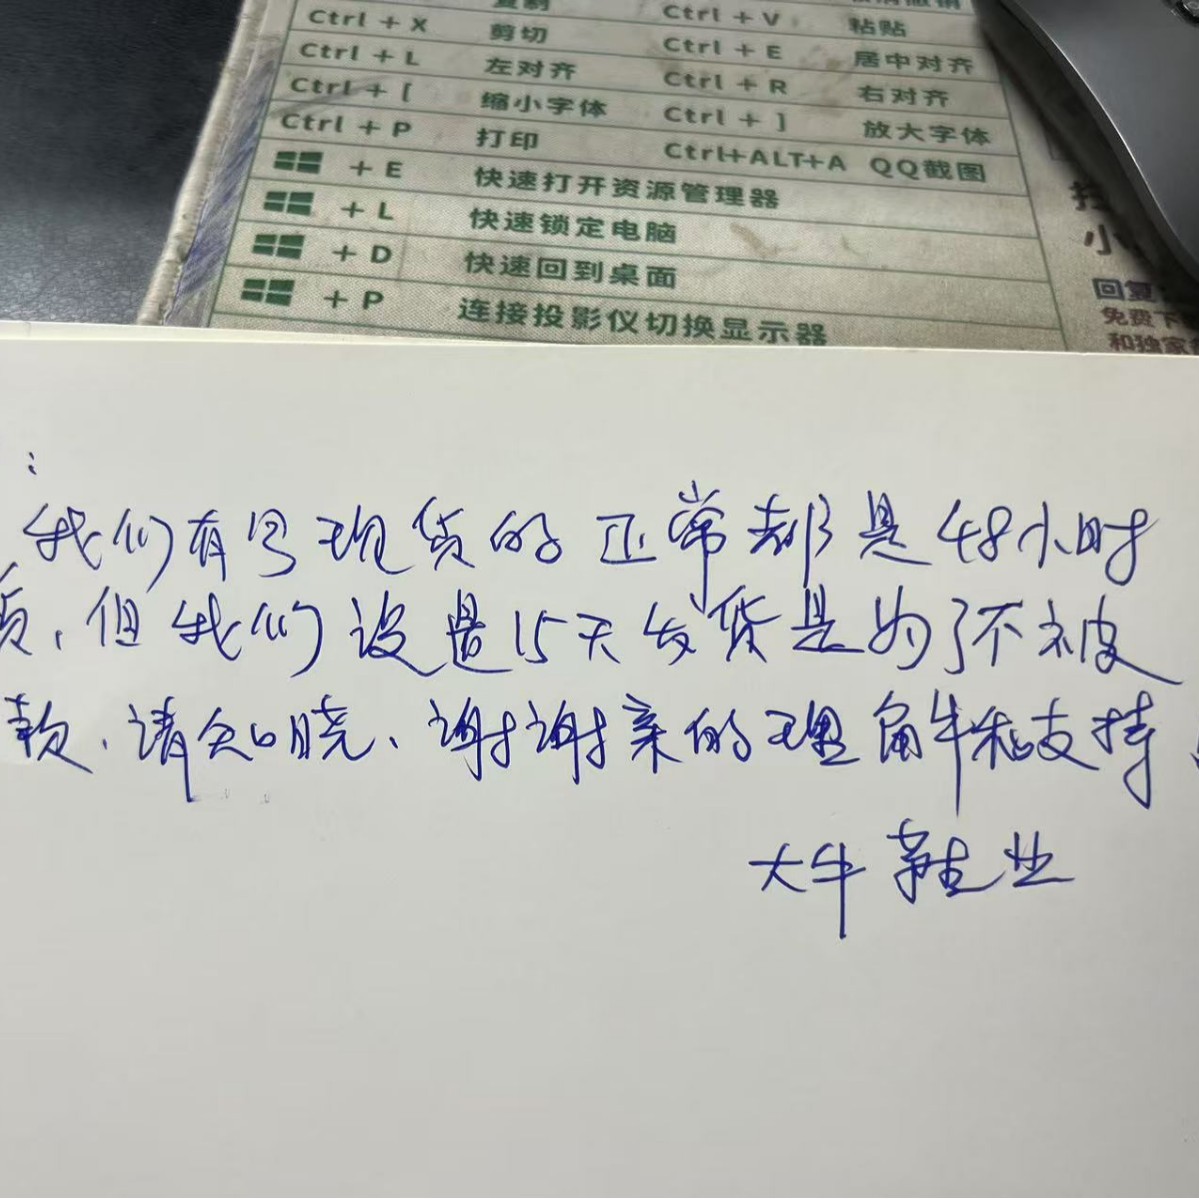 复制
Ctrl + X 剪切 Ctrl + V 粘贴
Ctrl + L 左对齐 Ctrl + E 居中对齐
Ctrl + [ 缩小字体 Ctrl + R 右对齐
Ctrl + P 打印 Ctrl + ] 放大字体
Ctrl+ALT+A QQ截图
+ E 快速打开资源管理器
+ L 快速锁定电脑
+ D 快速回到桌面
+ P 连接投影仪切换显示器
小
回复
免费下
和独家
:
我们有号现货的正常都是48小时
货、但我们设置15天发货是为了不被
款、请知晓、谢谢亲的理解和支持
大牛鞋业